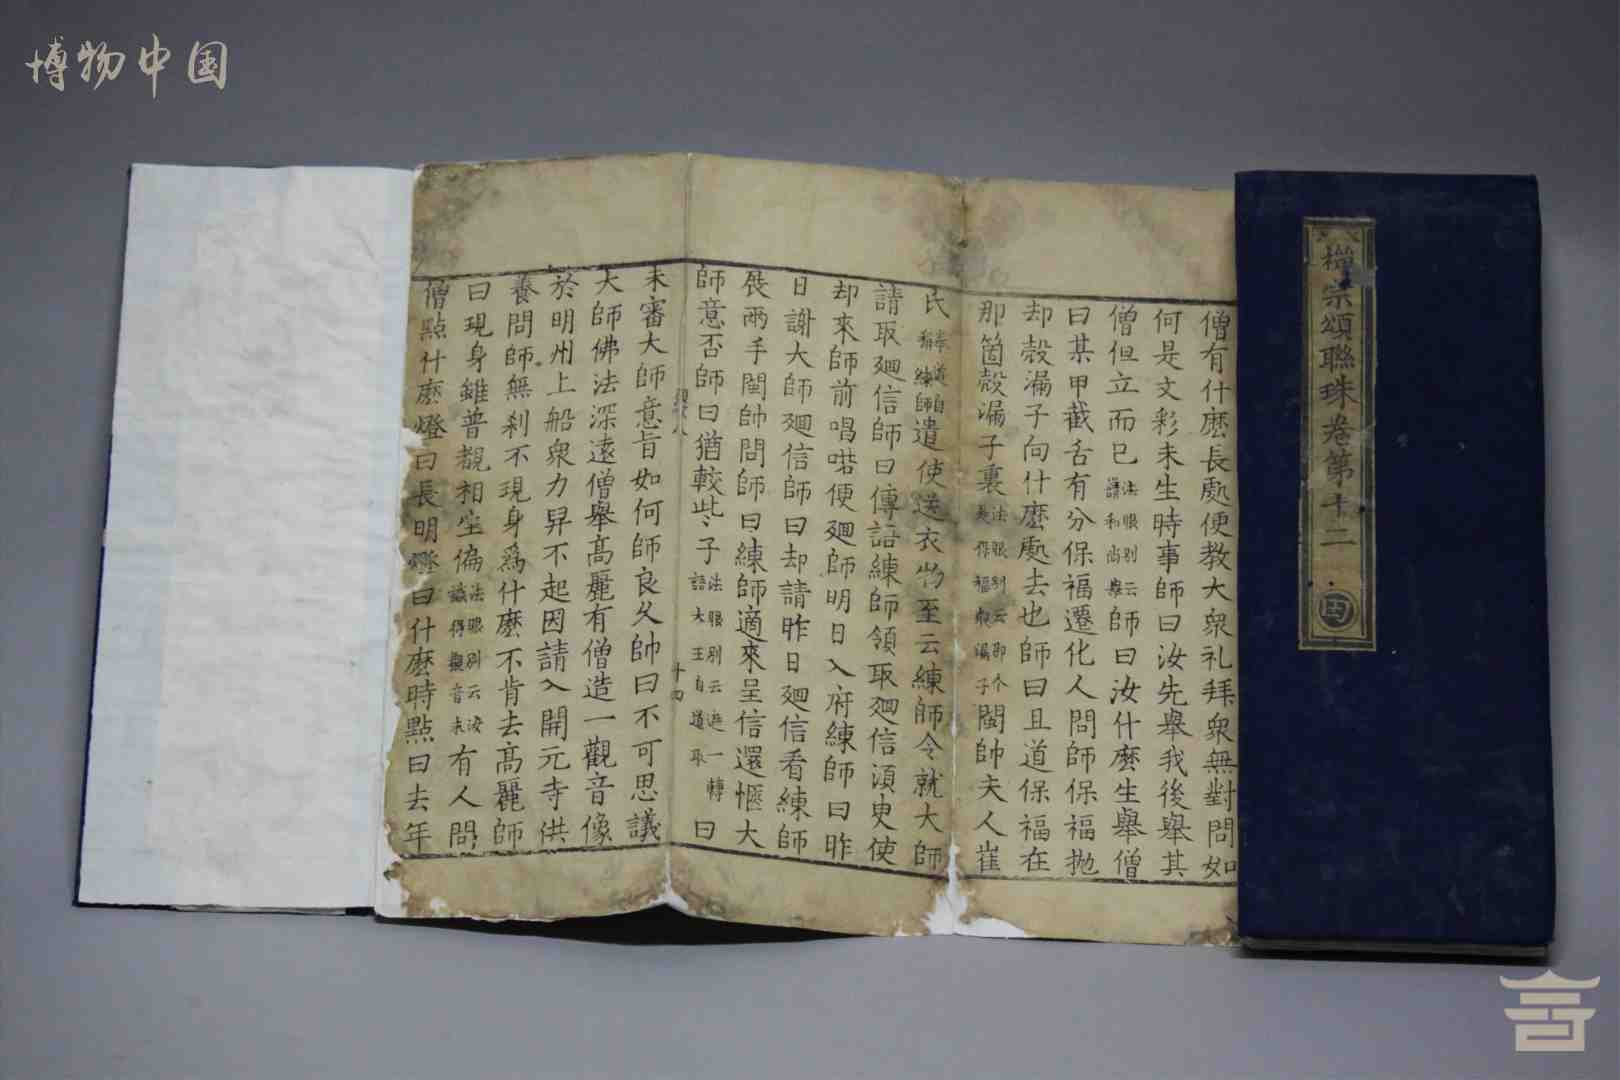 博物中国
禪宗頌聯珠卷第十二
僧有什麽長處便教大衆礼拜衆無對問如
何是文彩未生時事師曰汝先舉我後舉其
僧但立而已法眼別云請和尚舉師曰汝什麽生舉僧
曰某甲截舌有分保福遷化人問師保福抛
却殼漏子向什麽處去也師曰且道保福在
那箇殼漏子裏法眼別云那个是保福殼漏子閩帥夫人崔
氏奉道自稱練師遣使送衣物至云練師令就大師
請取廻信師曰傳語練師領取廻信湏臾使
却來師前唱喏便廻師明日入府練師曰昨
日謝大師廻信師曰却請昨日廻信看練師
展兩手閩帥問師曰練師適來呈信還愜大
師意否師曰猶較些子法眼別云這一轉語大王自道取曰
十四
未審大師意旨如何師良久帥曰不可思議
大師佛法深遠僧舉高麗有僧造一觀音像
於明州上船衆力昇不起因請入開元寺供
養問師無刹不現身爲什麽不肯去高麗師
曰現身雖普覩相生偏法眼別云汝識得觀音未有人問
僧點什麽燈曰長明燈曰什麽時點曰去年